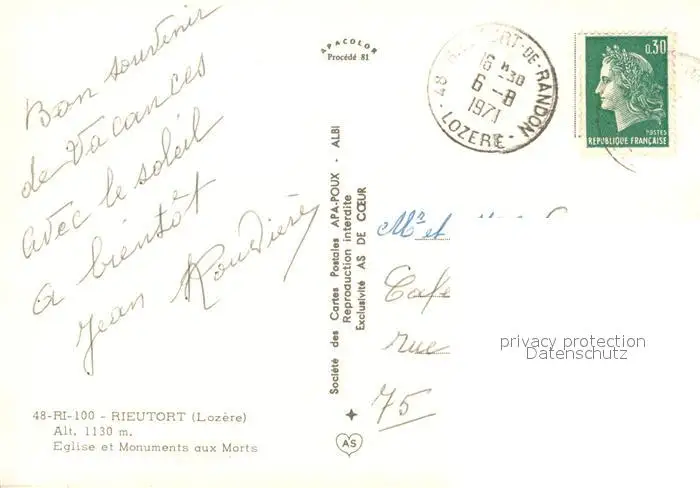 Bon souvenir
de Vacances
avec le soleil
a bientôt
Jean
48-RI-100 - RIEUTORT (Lozère)
Alt. 1130 m.
Eglise et Monuments aux Morts
APACOLOR
Procédé 81
Société des Cartes Postales APA-POUX - ALBI
Reproduction interdite
Exclusivité AS DE CŒUR
AS
48 - RT-DE-RANDON
16 H30
6 -8
1971
LOZERE
0,30
POSTES
REPUBLIQUE FRANÇAISE
Mr et
Cafe
rue
75
privacy protection
Datenschutz